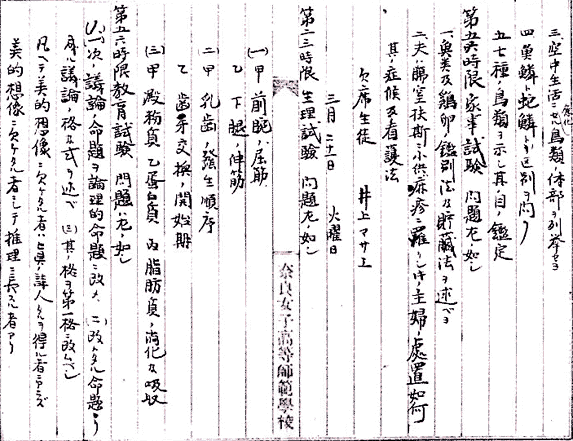 三、空中生活ニヨル鳥類体部ノ変化ヲ列挙セヨ
四、魚鱗ト蛇鱗トノ区別ヲ問フ
五、七種ノ鳥類ヲ示シ其ノ目ノ鑑定
第五六時限 家事試験 問題左ノ如シ
一、魚類及鶏卵ノ鑑別法及貯蔵法ヲ述ベヨ
其ノ症候及看護法
欠席生徒 井上マサエ
三月二十一日 火曜日
第二三時限 生理試験 問題左ノ如シ
(一)甲 前腕ノ屈筋
乙 下腿ノ伸筋
二 甲 乳歯ノ発生順序
乙 歯牙交換ノ開始期
(三)甲 殿粉質 乙 蛋白質 丙 脂肪質ノ消化及吸収
第五六時限教育試験 問題左ノ如シ
(一)次ノ議論ノ命題ヲ論理的命題ニ改メ (二)改メタル命題ノ
議論ノ格ト式ヲ述べ (三)其ノ格ヲ第一格ニ改ムベシ
凡ヘテ美的想像ニ欠ケタル者ハ真ノ詩人タルヲ得ル者ニアラズ
美的想像ニ欠ケタル者ニシテ推理ニ長ズル者アリ
奈良女子高等師範學校